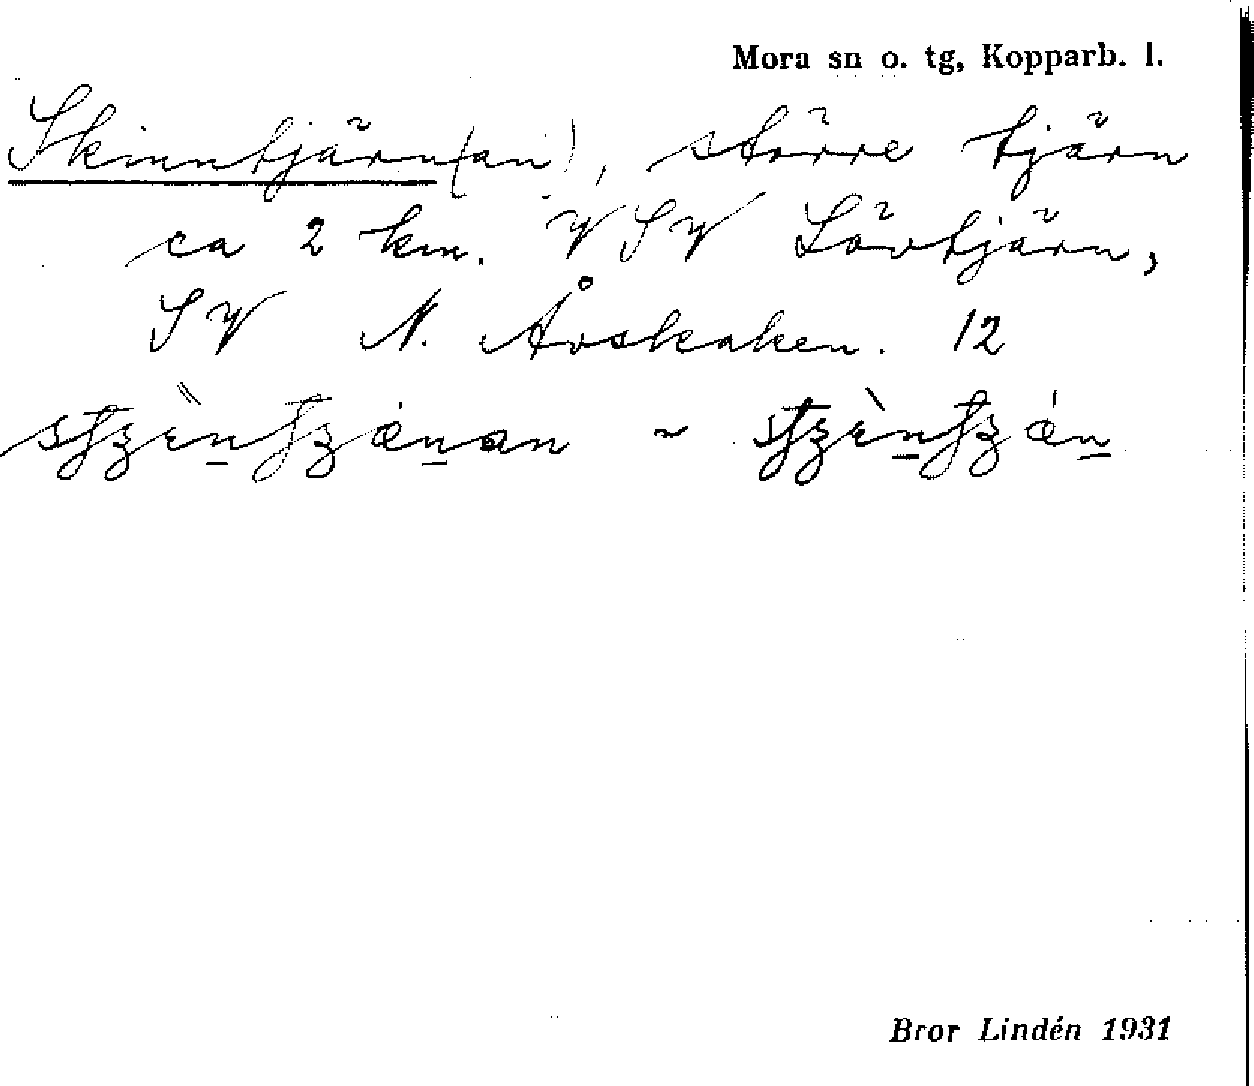 Mora sn o. tg, Kopparb. l.
Skinntjärn(an), större tjärn
ca 2 km. VSV Lövtjärn,
SV N. Åvskaken. 12
~
Bror Lindén 1931